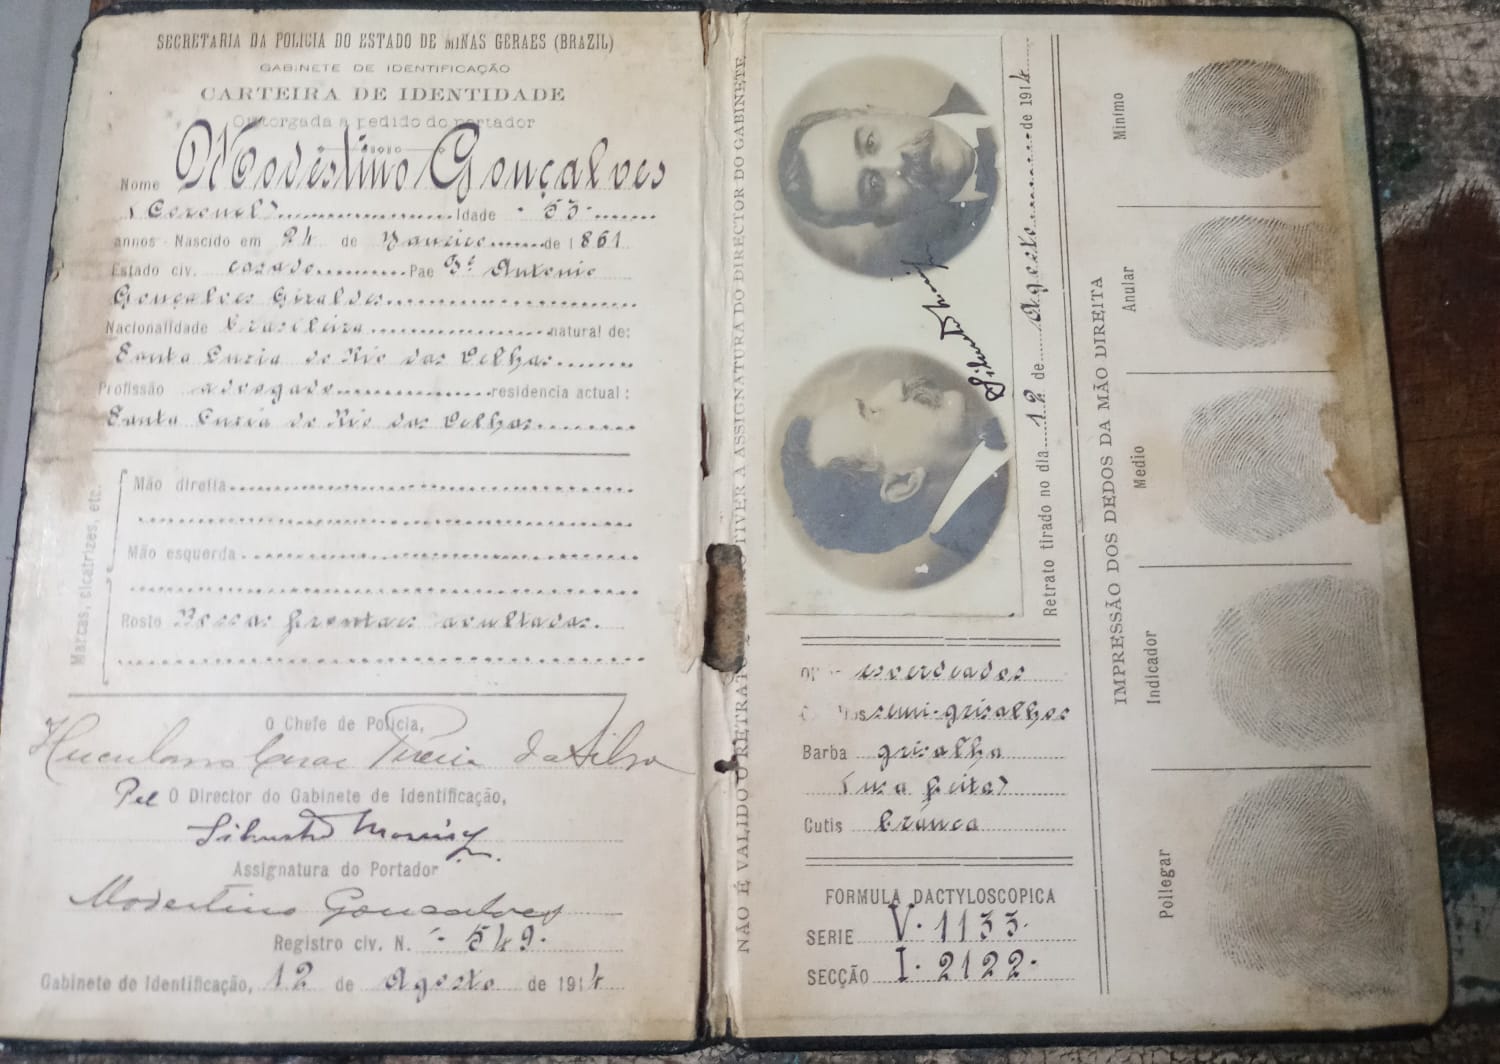 SECRETARIA DA POLICIA DO ESTADO DE MINAS GERAES (BRAZIL)
GABINETE DE IDENTIFICAÇÃO
CARTEIRA DE IDENTIDADE
Outorgada a pedido do portador
Nome Modestino Gonçalves
(Coronel) Idade 53
annos - Nascido em 24 de Janeiro de 1861
Estado civ. casado Pae Antonio
Gonçalves Giraldes
Nacionalidade brasileira natural de:
Santa Luzia do Rio das Velhas
Profissão advogado residencia actual:
Santa Luzia do Rio das Velhas
Marcas, cicatrizes, etc.
Mão direita
Mão esquerda
Rosto Bossas frontaes avultadas.
O Chefe de Policia,
Herculano Cesar Pereira da Silva
Pel O Director do Gabinete de Identificação,
Assignatura do Portador
Modestino Gonçalves
Registro civ. N. 549.
Gabinete de Identificação, 12 de Agosto de 1914
NÃO É VALIDO O RETRATO QUE NÃO TIVER A ASSIGNATURA DO DIRECTOR DO GABINETE
Retrato tirado no dia 12 de Agosto de 1914
esverdeados
semi-grisalhos
Barba grisalha
(usa feita)
Cutis branca
FORMULA DACTYLOSCOPICA
SERIE V. 1133.
SECÇÃO I. 2122.
IMPRESSÃO DOS DEDOS DA MÃO DIREITA
Minimo
Anular
Medio
Indicador
Pollegar